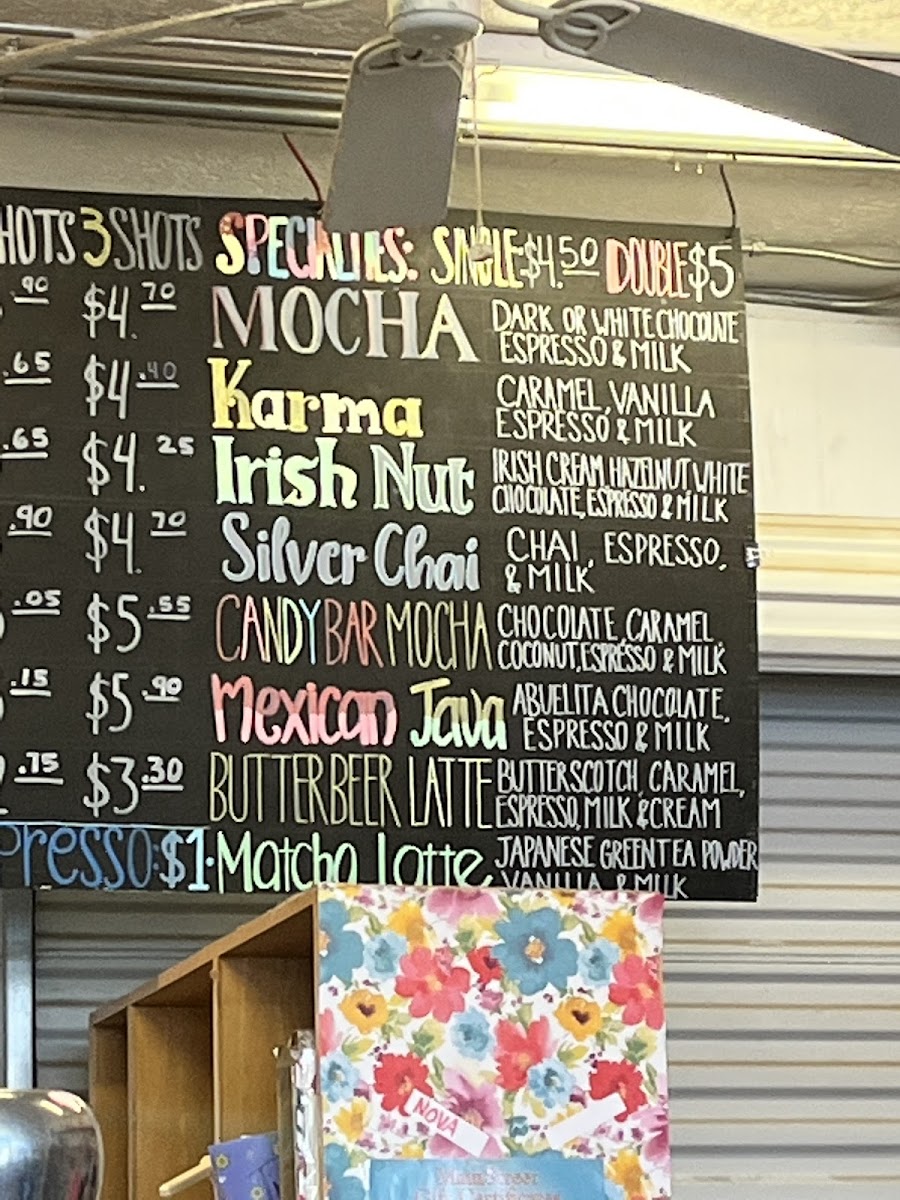 HOTS 3 SHOTS SPECIALTIES: SINGLE $4.50 DOUBLE $5
.90 $4.70 MOCHA DARK OR WHITE CHOCOLATE,
ESPRESSO & MILK
.65 $4.40 Karma CARAMEL, VANILLA
ESPRESSO & MILK
.65 $4.25 Irish Nut IRISH CREAM, HAZELNUT, WHITE
CHOCOLATE, ESPRESSO & MILK
.90 $4.70 Silver Chai CHAI, ESPRESSO,
& MILK
.05 $5.55 CANDY BAR MOCHA CHOCOLATE, CARAMEL,
COCONUT, ESPRESSO & MILK
.15 $5.90 Mexican Java ABUELITA CHOCOLATE,
ESPRESSO & MILK
.75 $3.30 BUTTERBEER LATTE BUTTERSCOTCH, CARAMEL,
ESPRESSO, MILK & CREAM
presso: $1. Matcha Latte JAPANESE GREEN TEA POWDER
VANILLA & MILK
NOVA
Main Street
Gift Certificates